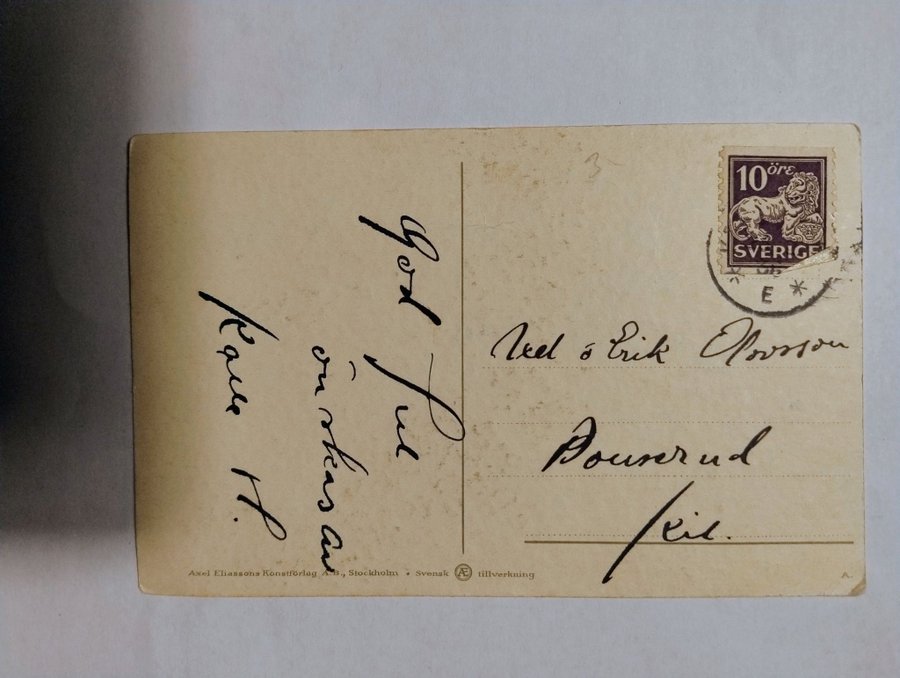 God Jul
önskas av
Kalle H.
3-
10 öre
SVERIGE
E
Ved ö Erik Olovsson
Bouserud
Kil.
Axel Eliassons Konstförlag A.B., Stockholm • Svensk Æ tillverkning
A.